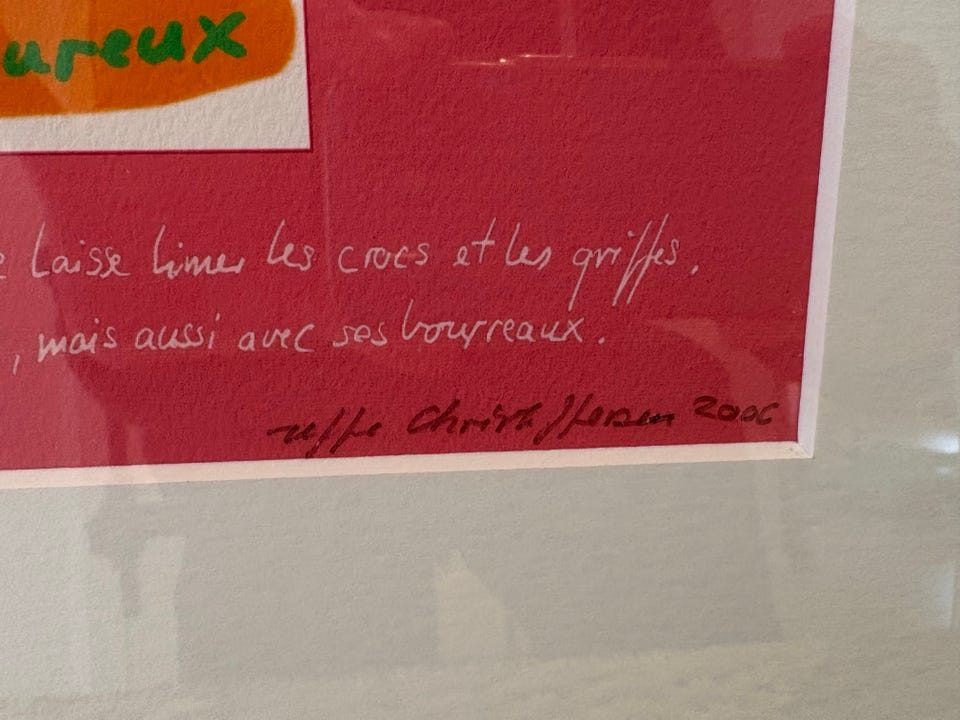 ureux
laisse limer les crocs et les griffes.
, mais aussi avec ses bourreaux.
Uffe Christoffersen 2006